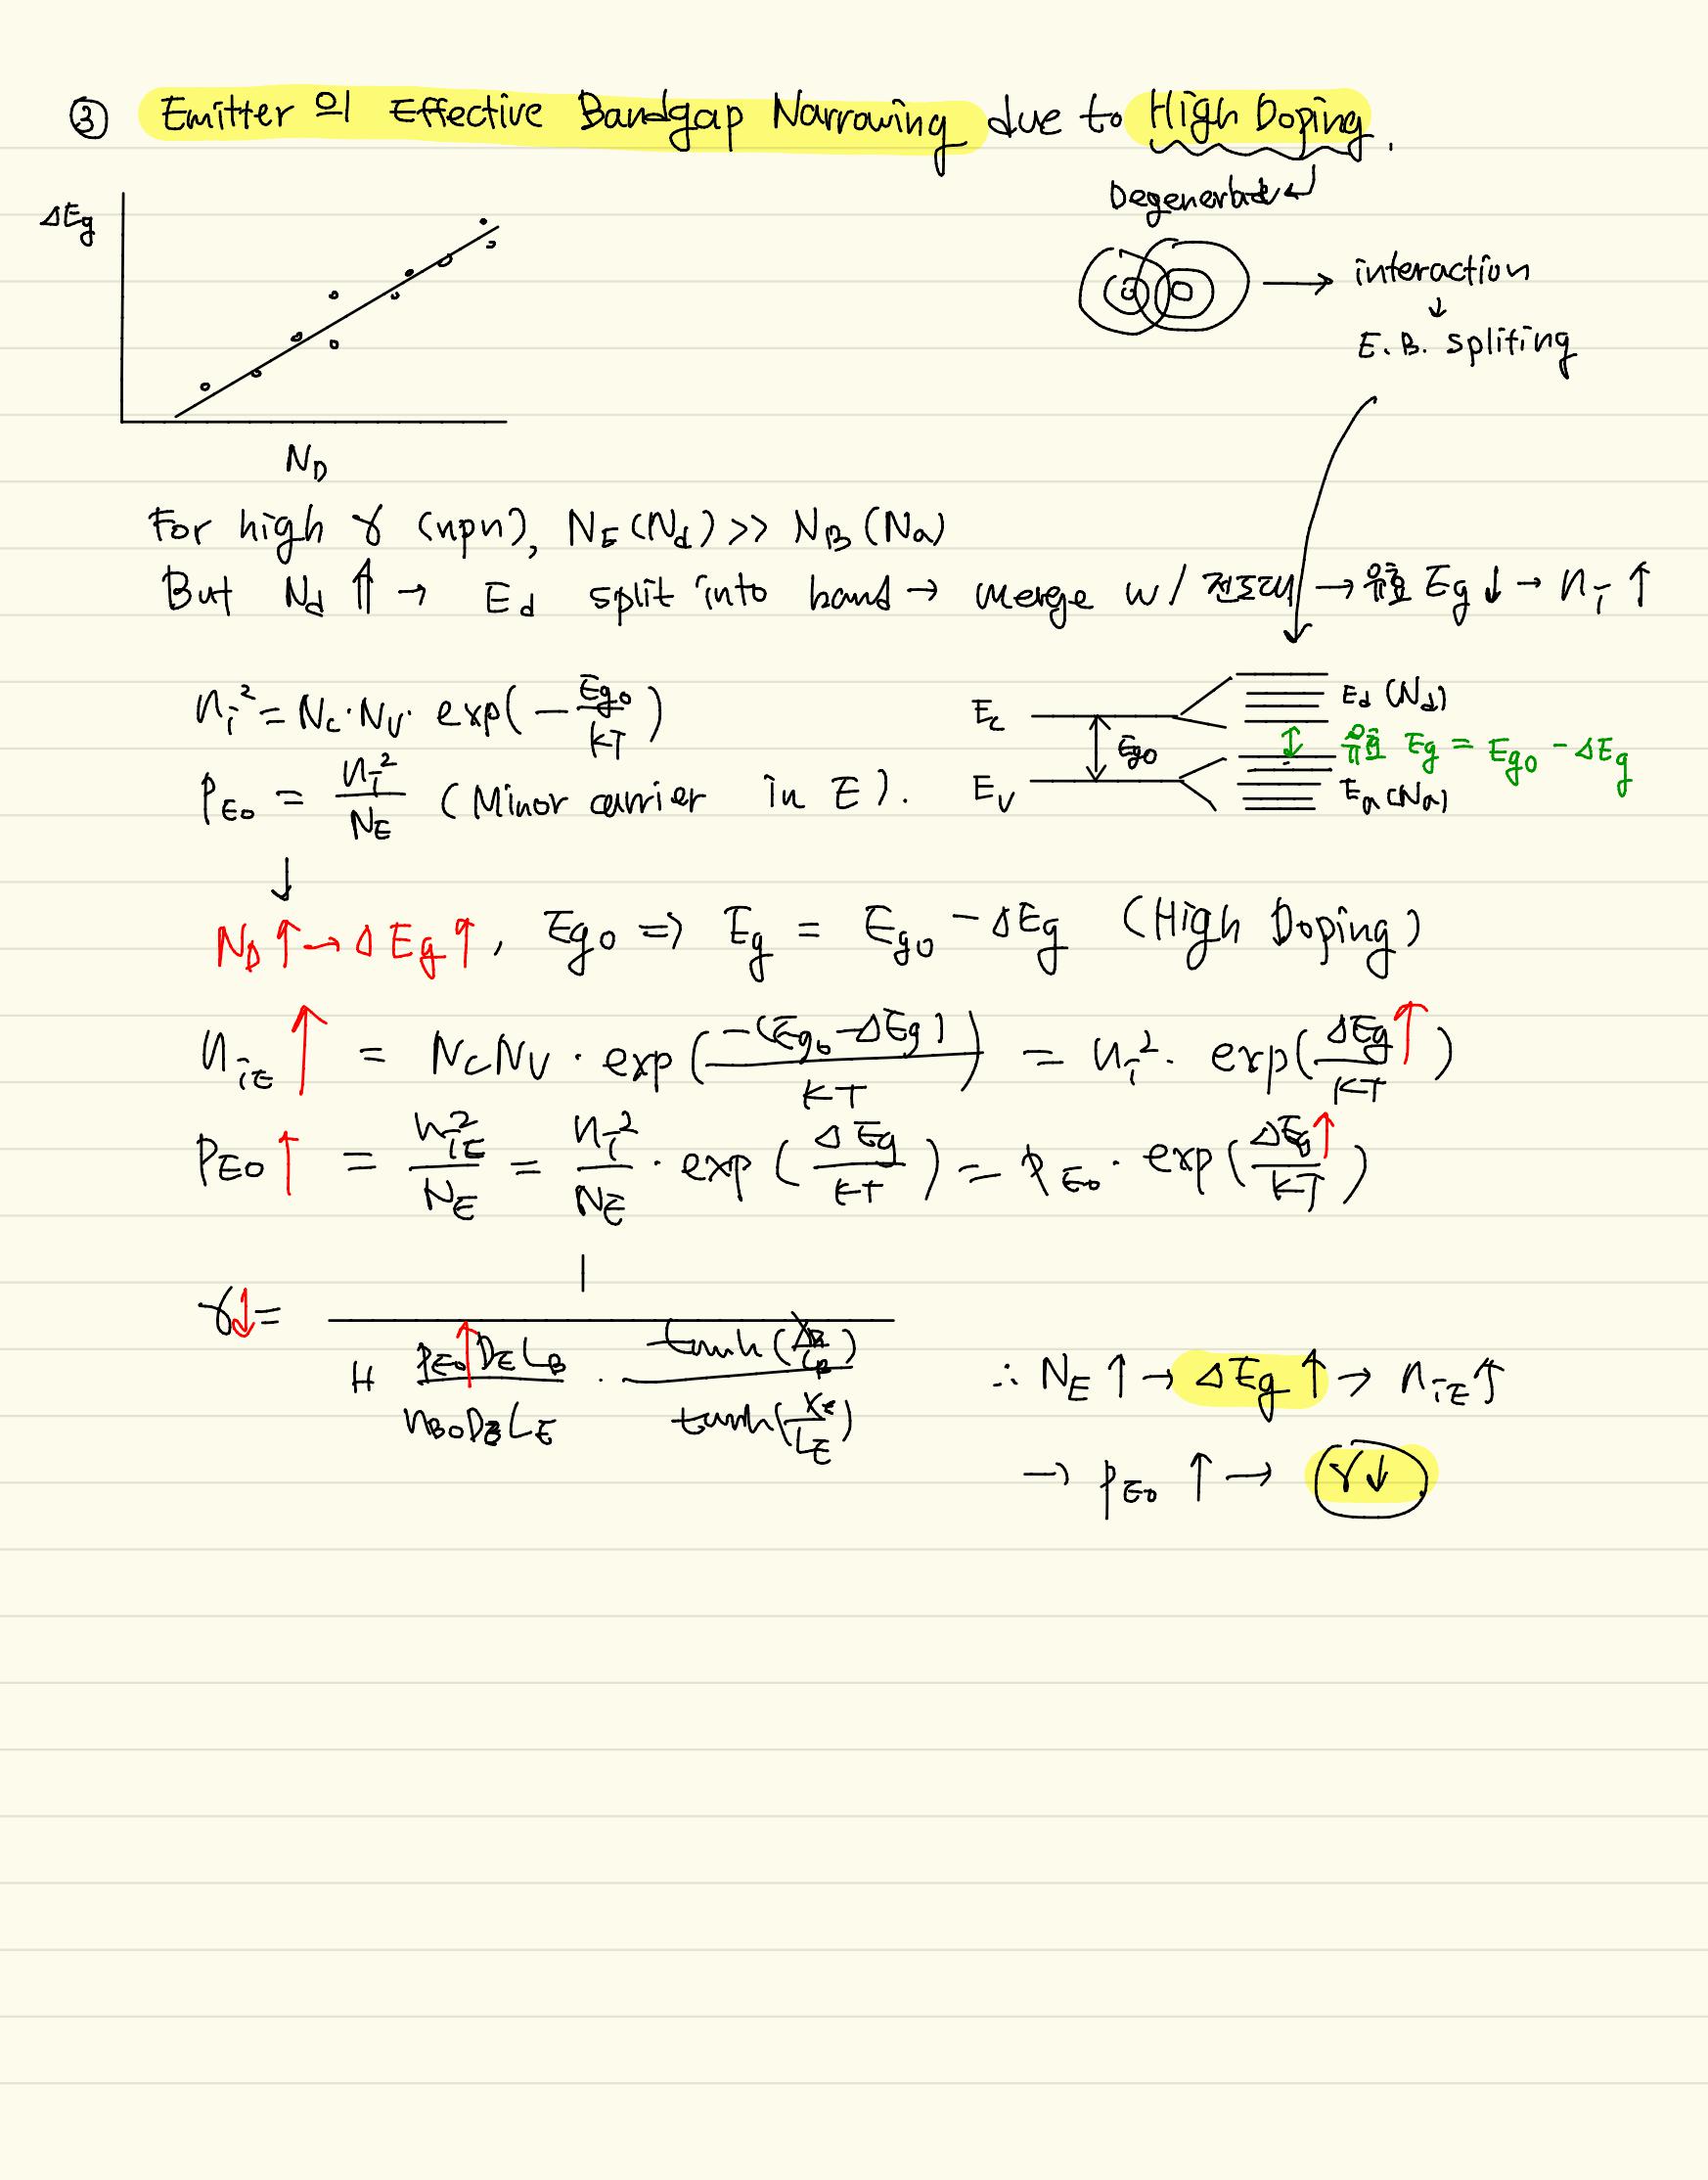 ③ Emitter의 Effective Bandgap Narrowing due to High Doping.
Degenerate
ΔEg
interaction
↓
E.B. spliting
N_D
For high γ (npn), N_E(N_d) >> N_B(N_a)
But N_d ⇑ → E_d split into band → merge w/ 전도대 → 유효 Eg ↓ → n_i ↑
n_i² = N_C·N_V· exp(-Eg₀/kT)
E_c Eg₀ E_d (N_d)
유효 Eg = Eg₀ - ΔEg
P_E₀ = n_i²/N_E (Minor carrier in E).
E_V E_a (N_a)
↓
N_D ↑ → ΔEg ↑, Eg₀ => Eg = Eg₀ - ΔEg (High Doping)
n_iE ↑ = N_C N_V · exp(-(Eg₀-ΔEg)/kT) = n_i² · exp(ΔEg↑/kT)
P_E₀ ↑ = n_iE²/N_E = n_i²/N_E · exp(ΔEg/kT) = P_E₀ · exp(ΔEg↑/kT)
γ↓ = 1 / (1+ P_E₀↑D_E L_B / n_B₀D_B L_E · tanh(X_B/L_B) / tanh(X_E/L_E))
∴ N_E ↑ → ΔEg ↑ → n_iE ↑
→ P_E₀ ↑ → γ↓